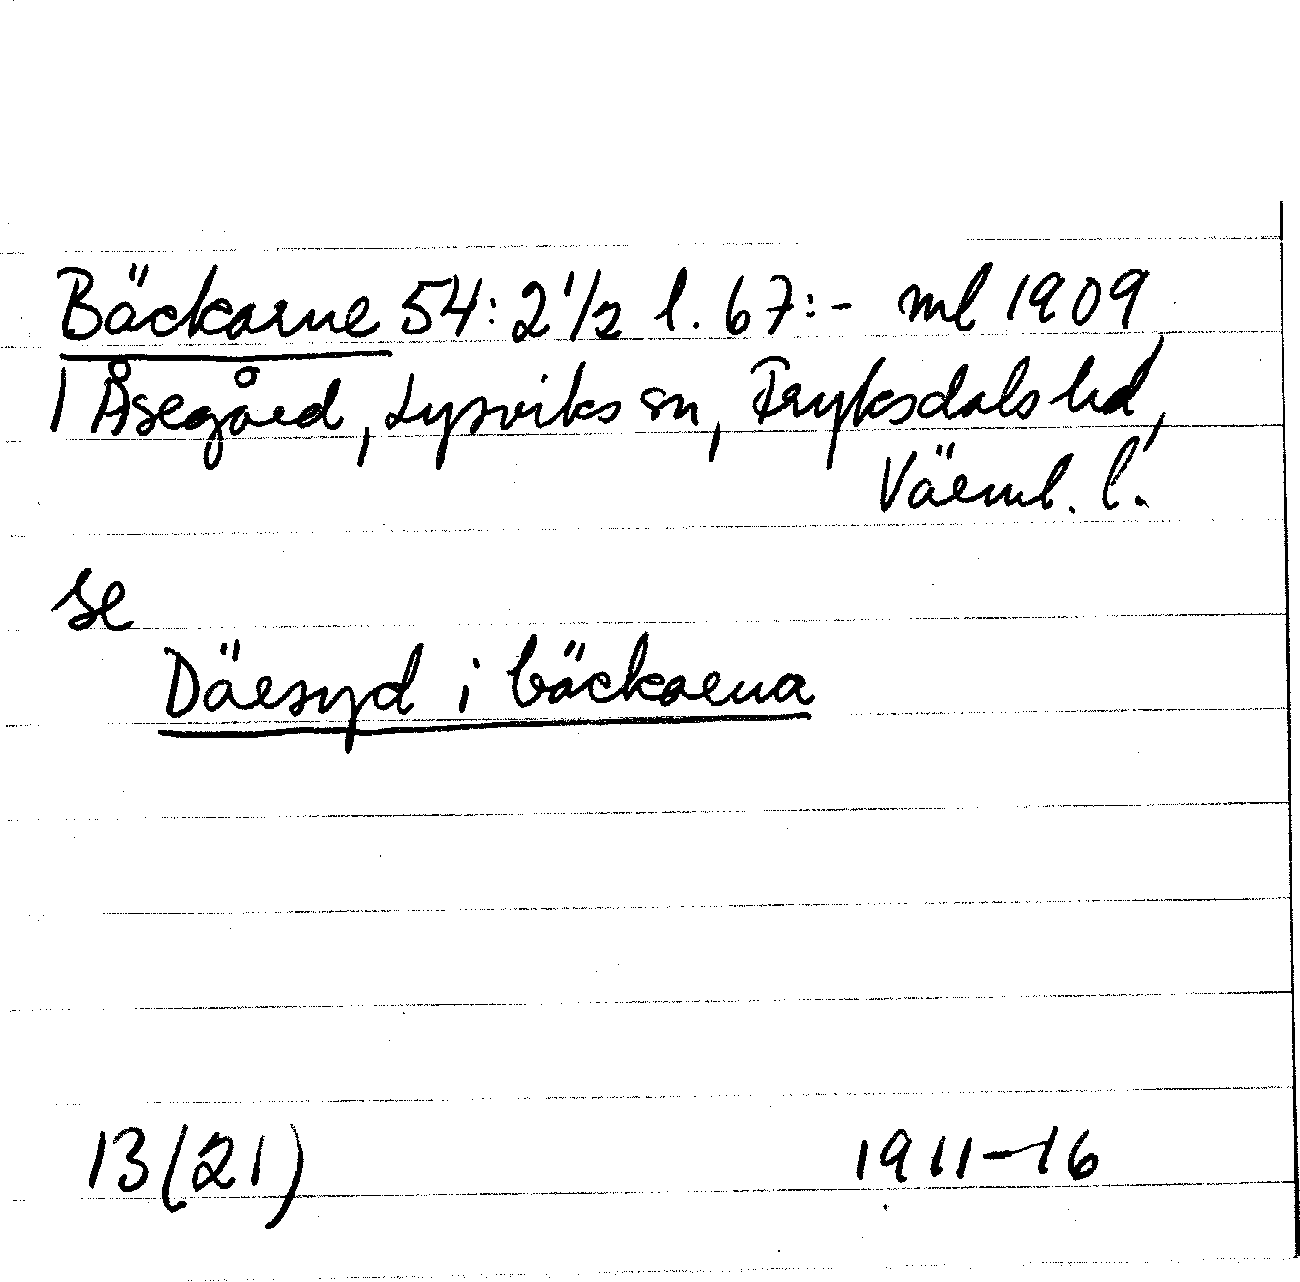 Bäckarne 54:2 1/2 l. 67:- ml 1909
I Åsegård, Lysviks sn, Fryksdals hd,
Värml. l.
se
Därsyd i bäckarna
13(21) 1911-16